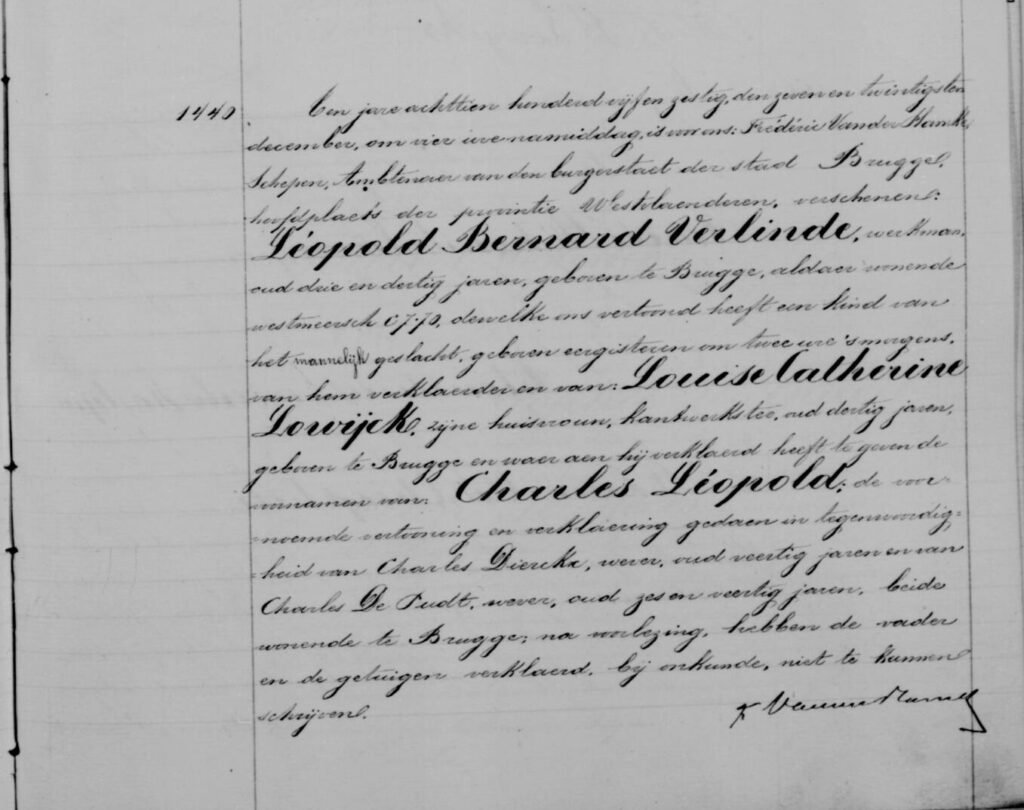 1440. Een jare achttien honderd vijf en zestig, den zeven en twintigsten
december, om vier ure namiddag, is voor ons: Frédéric Vander
Schepen, Ambtenaer van den burgerstaet der stad Brugge,
hoofdplaets der provintie Westvlaenderen, verschenen:
Léopold Bernard Verlinde, werkman,
oud drie en dertig jaren, geboren te Brugge, aldaer wonende
westmeersch C7.70, dewelke ons vertoond heeft een kind van
het mannelijk geslacht, geboren eergisteren om twee ure 's morgens,
van hem verklaerder en van: Louise Catherine
Lowijck, zijne huisvrouw, kantwerkster, oud dertig jaren,
geboren te Brugge en waer aen hij verklaerd heeft te geven de
voornamen van: Charles Léopold; de voor=
=noemde vertooning en verklaering gedaen in tegenwoordig=
=heid van Charles Dierckx, wever, oud veertig jaren en van
Charles De Pudt, wever, oud zes en veertig jaren, beide
wonende te Brugge; na voorlezing, hebben de vader
en de getuigen verklaerd, bij onkunde, niet te kunnen
schrijven.